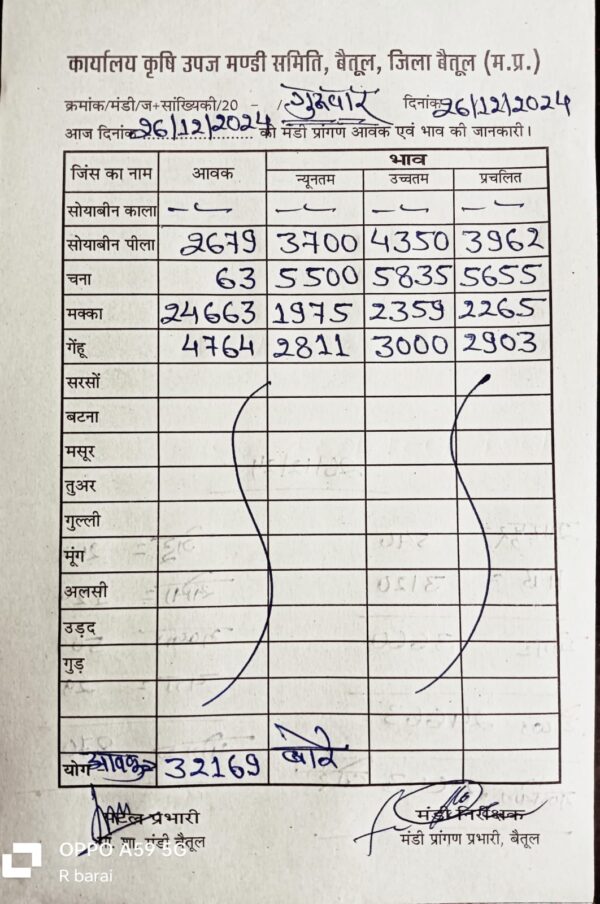 कार्यालय कृषि उपज मण्डी समिति, बैतूल, जिला बैतूल (म.प्र.)
क्रमांक/मंडी/ज+सांख्यिकी/20 - / गुरुवार दिनांक 26/12/2024
आज दिनांक 26/12/2024 को मंडी प्रांगण आवक एवं भाव की जानकारी।
जिंस का नाम आवक भाव
न्यूनतम उच्चतम प्रचलित
सोयाबीन काला
सोयाबीन पीला 2679 3700 4350 3962
चना 63 5500 5835 5655
मक्का 24663 1975 2359 2265
गेंहू 4764 2811 3000 2903
सरसों
बटना
मसूर
तुअंर
गुल्ली
मूंग
अलसी
उड़द
गुड़
योग आवक 32169 बोरे
पटल प्रभारी मंडी निरीक्षक
मंडी बैतूल मंडी प्रांगण प्रभारी, बैतूल
OPPO A59 5G
R barai